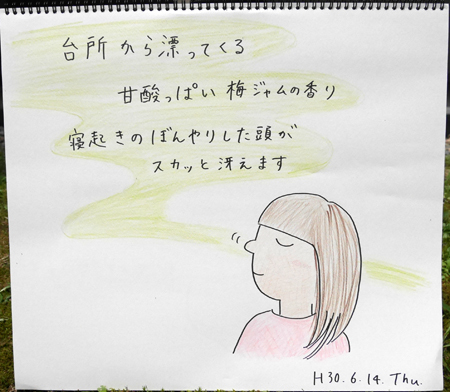 台所から漂ってくる
甘酸っぱい梅ジャムの香り
寝起きのぼんやりした頭が
スカッと冴えます
H30.6.14.Thu.